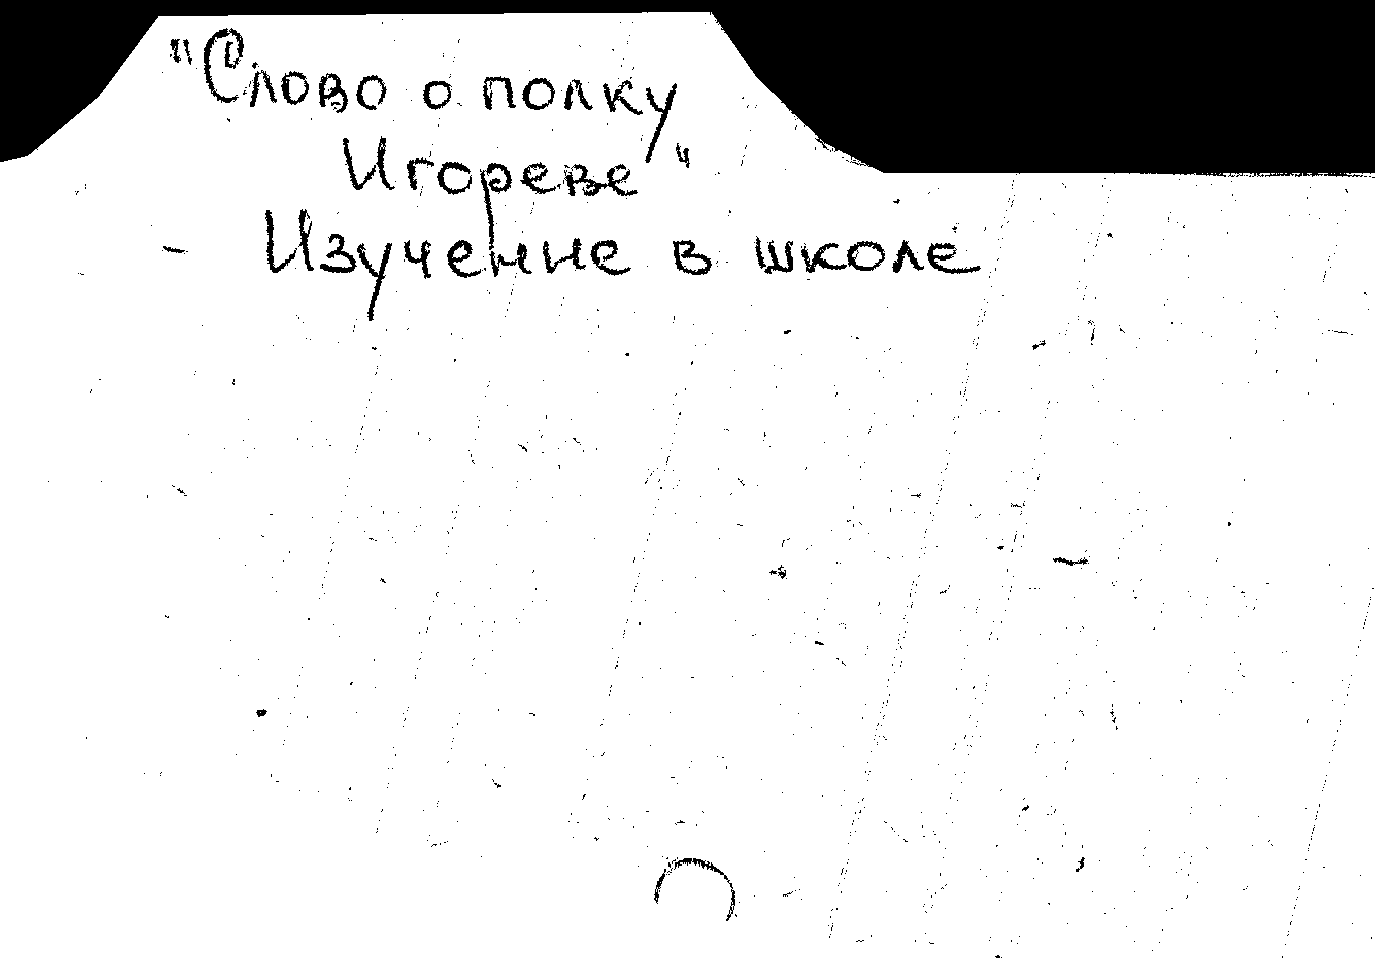 "Слово о полку
Игореве"
- Изучение в школе